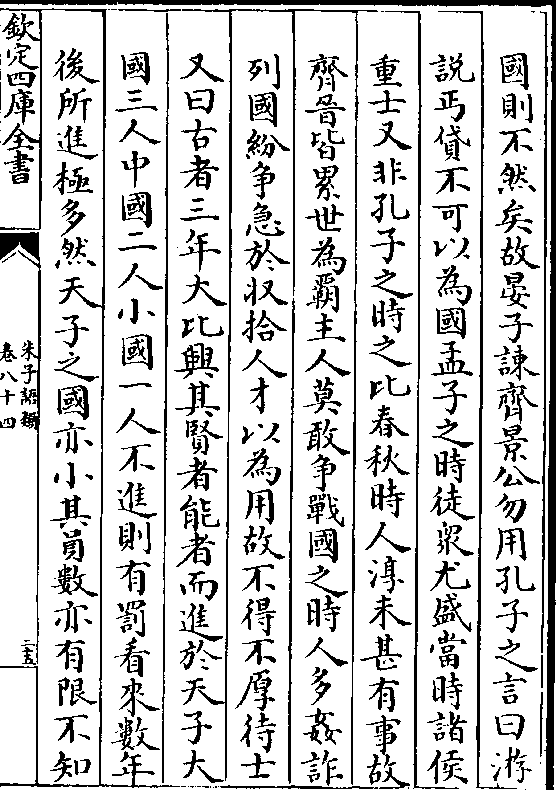 國則不然矣故晏子諫齊景公勿用孔子之言曰游
説丐貸不可以為國孟子之時徒衆尤盛當時諸侯
重士又非孔子之時之比春秋時人淳未甚有事故
齊晉皆累世為霸主人莫敢争戰國之時人多姦詐
列國紛争急於収拾人才以為用故不得不厚待士
又曰古者三年大比興其賢者能者而進於天子大
國三人中國二人小國一人不進則有罰看來數年
後所進極多然天子之國亦小其員數亦有限不知
欽定四庫全書
朱子語類
卷八十四
二十五